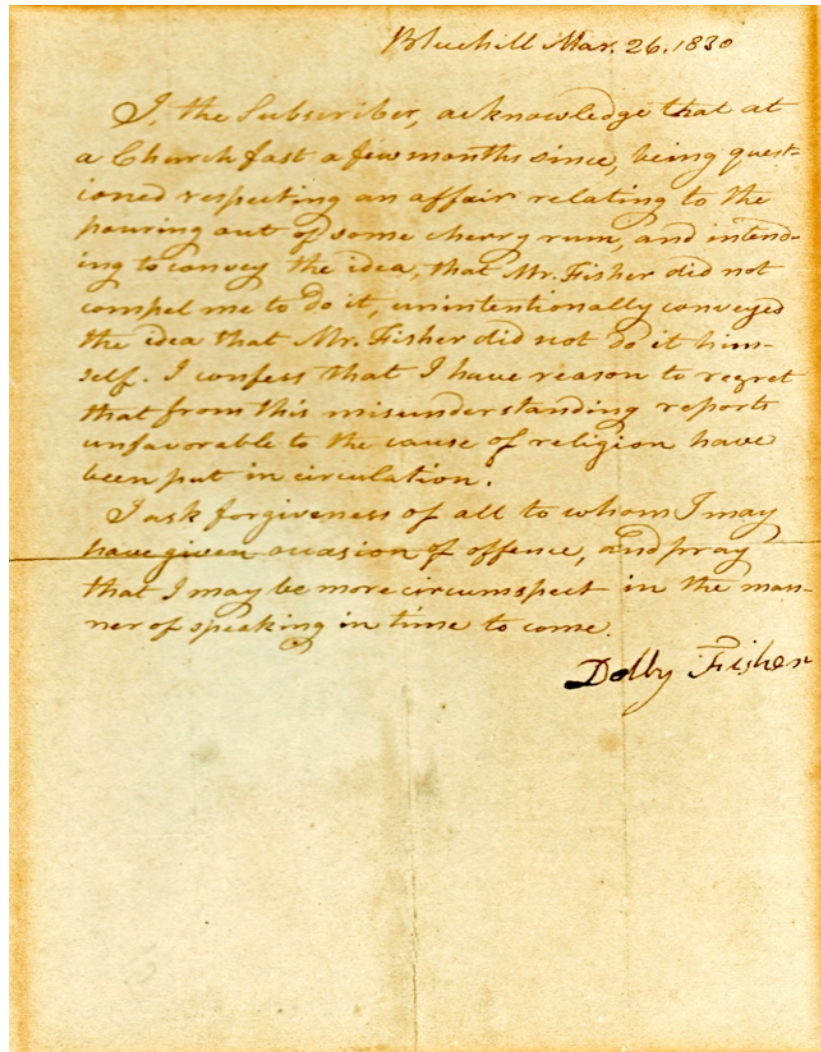 Bluehill Mar. 26. 1830
I, the Subscriber, acknowledge that at
a Church fast a few months since, being quest-
ioned respecting an affair relating to the
pouring out of some cherry rum, and intend-
ing to convey the idea, that Mr. Fisher did not
compel me to do it, unintentionally conveyed
the idea that Mr. Fisher did not do it him-
self. I confess that I have reason to regret
that from this misunderstanding reports
unfavorable to the cause of religion have
been put in circulation.
I ask forgiveness of all to whom I may
have given occasion of offence, and pray
that I may be more circumspect in the man-
ner of speaking in time to come.
Dolly Fisher